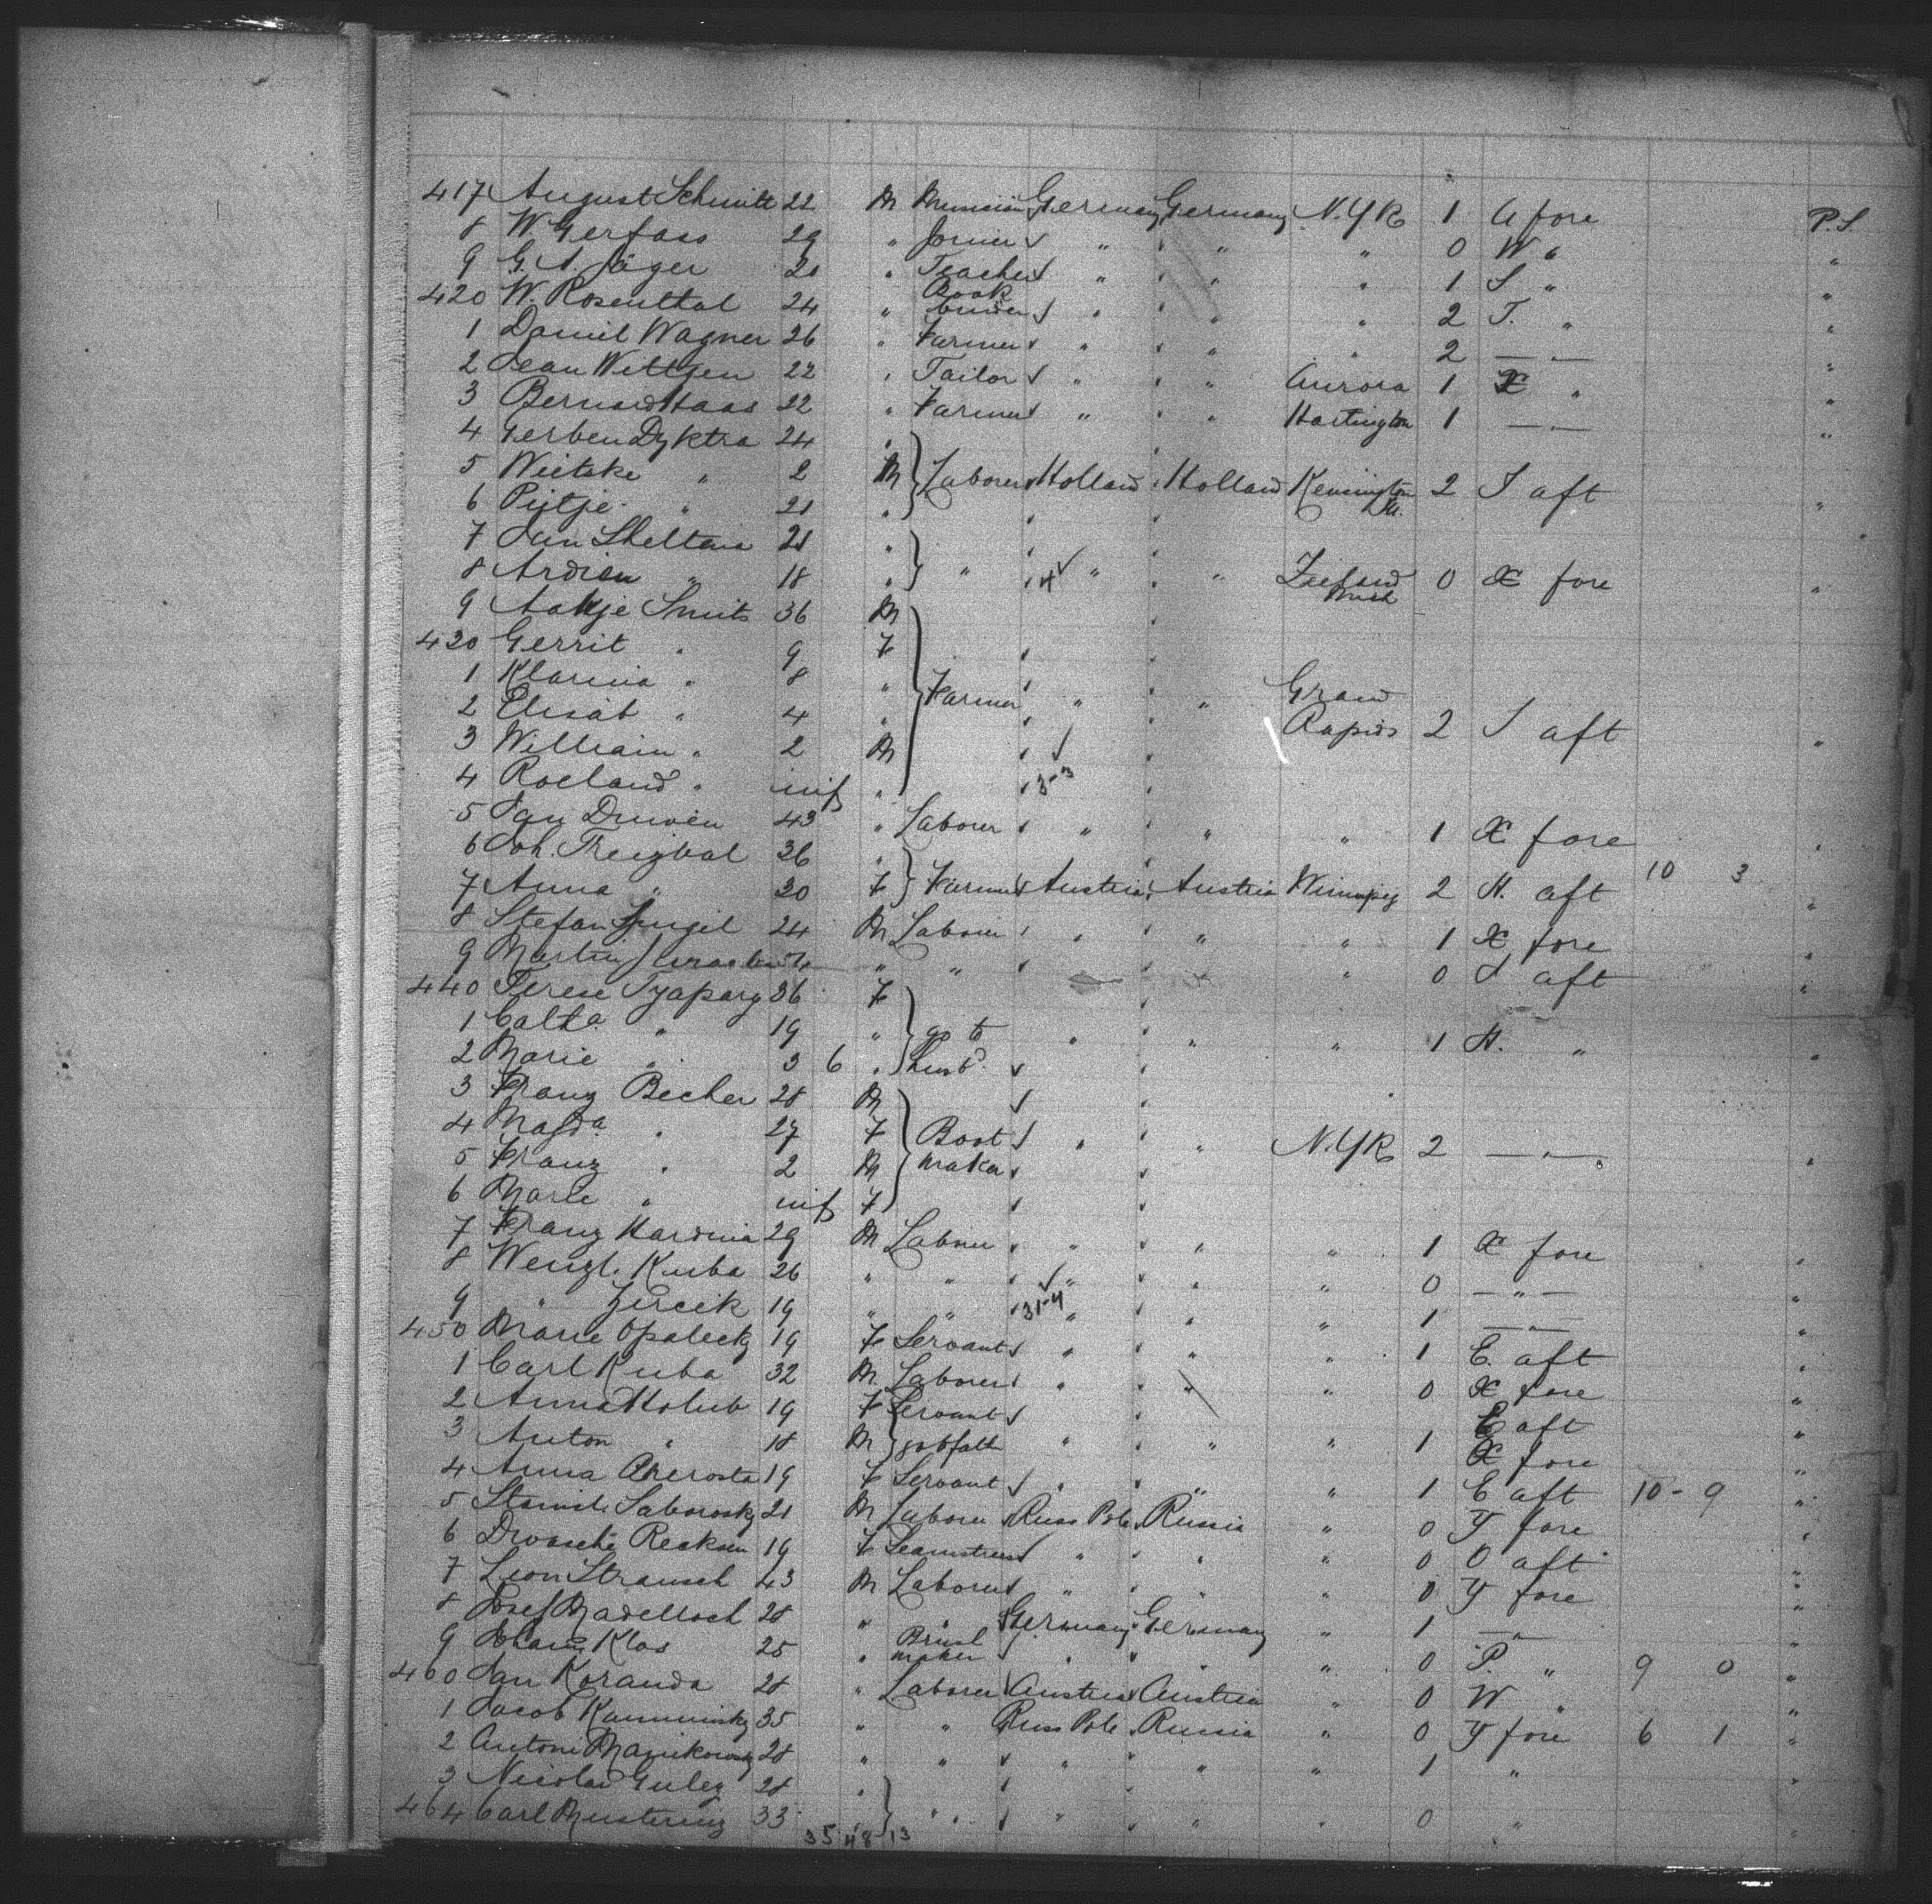 417 August Schmitt 22 M Musician Germany Germany N.YK 1 A fore P.S.
8 W. Gerfass 29 " Joiner " " " 0 W "
9 G. A. Jäger 21 " Teacher " " " 1 S " "
420 W. Rosenthal 24 " Book binder " " " 2 T. " "
1 Daniel Wagner 26 " Farmer " " " 2 — " — "
2 Jean Wittgen 22 " Tailor " " Aurora 1 X " "
3 Bernard Haas 22 " Farmer " " Hartington 1 — " — "
4 Gerben Dyktra 24 "
5 Wietske " 2 M Laborer Holland Holland Kensington 2 S aft "
6 Pytje " 21 "
7 Jan Skeltema 21 "
8 Ardien " 18 " " 4 " " Zeeland Mich 0 X fore "
9 Aakje Smits 36 M
430 Gerrit " 9 F
1 Klarina " 8 "
2 Elisab " 4 " Farmer " " Grand Rapids 2 S aft "
3 William " 2 M
4 Roeland " inf " 3-13
5 Jan Duwen 43 " Laborer " " " 1 X fore "
6 Joh. 36 "
7 Anna " 30 F Farmer Austria Austria Winnipeg 2 H. aft 10 3 "
8 Stefan 24 M Laborer " " " 1 X fore "
9 Martin " " " 0 S aft "
440 Terese 36 F
1 " 19 " go to " " " 1 H. " "
2 Marie " 3 6 " husbd.
3 Franz Becher 28 M
4 Magda " 27 F Boot " " N.YK 2 — " — "
5 Franz " 2 M maker
6 Marie " inf F
7 Franz Hardina 29 M Laborer " " " 1 X fore "
8 Wenzl. Kuba 26 " " " " " 0 — " — "
9 " Jercik 19 " " 31-4 " " " 1 — " — "
450 Marie Opalecky 19 F Servant " " " 1 E. aft "
1 Carl Kuba 32 M Laborer " " " 0 X fore "
2 Anna Holub 19 F Servant E aft "
3 Anton " 18 M " " " 1 X fore "
4 Anna 19 F Servant " " " 1 E aft 10-9 "
5 Saborosky 21 M Laborer Russ Pole Russia " 0 Y fore "
6 19 F Seamstress " " " 0 O aft "
7 Leon Strausch 43 M Laborer " " " 0 Y fore "
8 Josef 28 " Germany Germany " 1 — " — "
9 Klos 25 " Brush maker " " " 0 P. " 9 0 "
460 Jan Koranda 28 " Laborer Austria Austria " 0 W " "
1 Jacob Kamminsky 35 " " Russ Pole Russia " 0 Y fore 6 1 "
2 Antoni 28 " " " " " 1 " "
3 Nicolai Gulez 28 "
464 Carl 33 " " " " " 0 " "
35 48 13